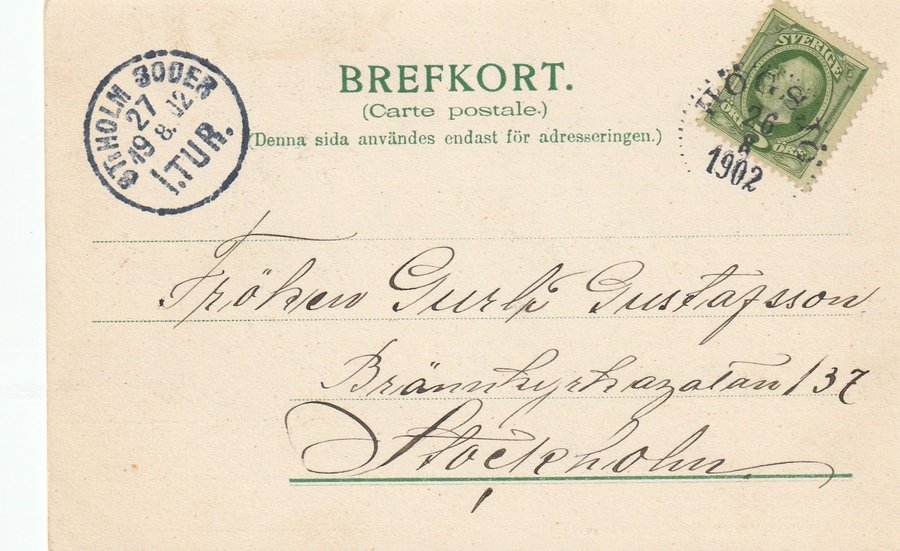 BREFKORT.
(Carte postale.)
(Denna sida användes endast för adresseringen.)
STHOLM
27
19 8. 02
I.TUR.
SVERIGE
26
8
1902
Fröken Gurli Gustafsson
Brännkyrkagatan 137
Stockholm